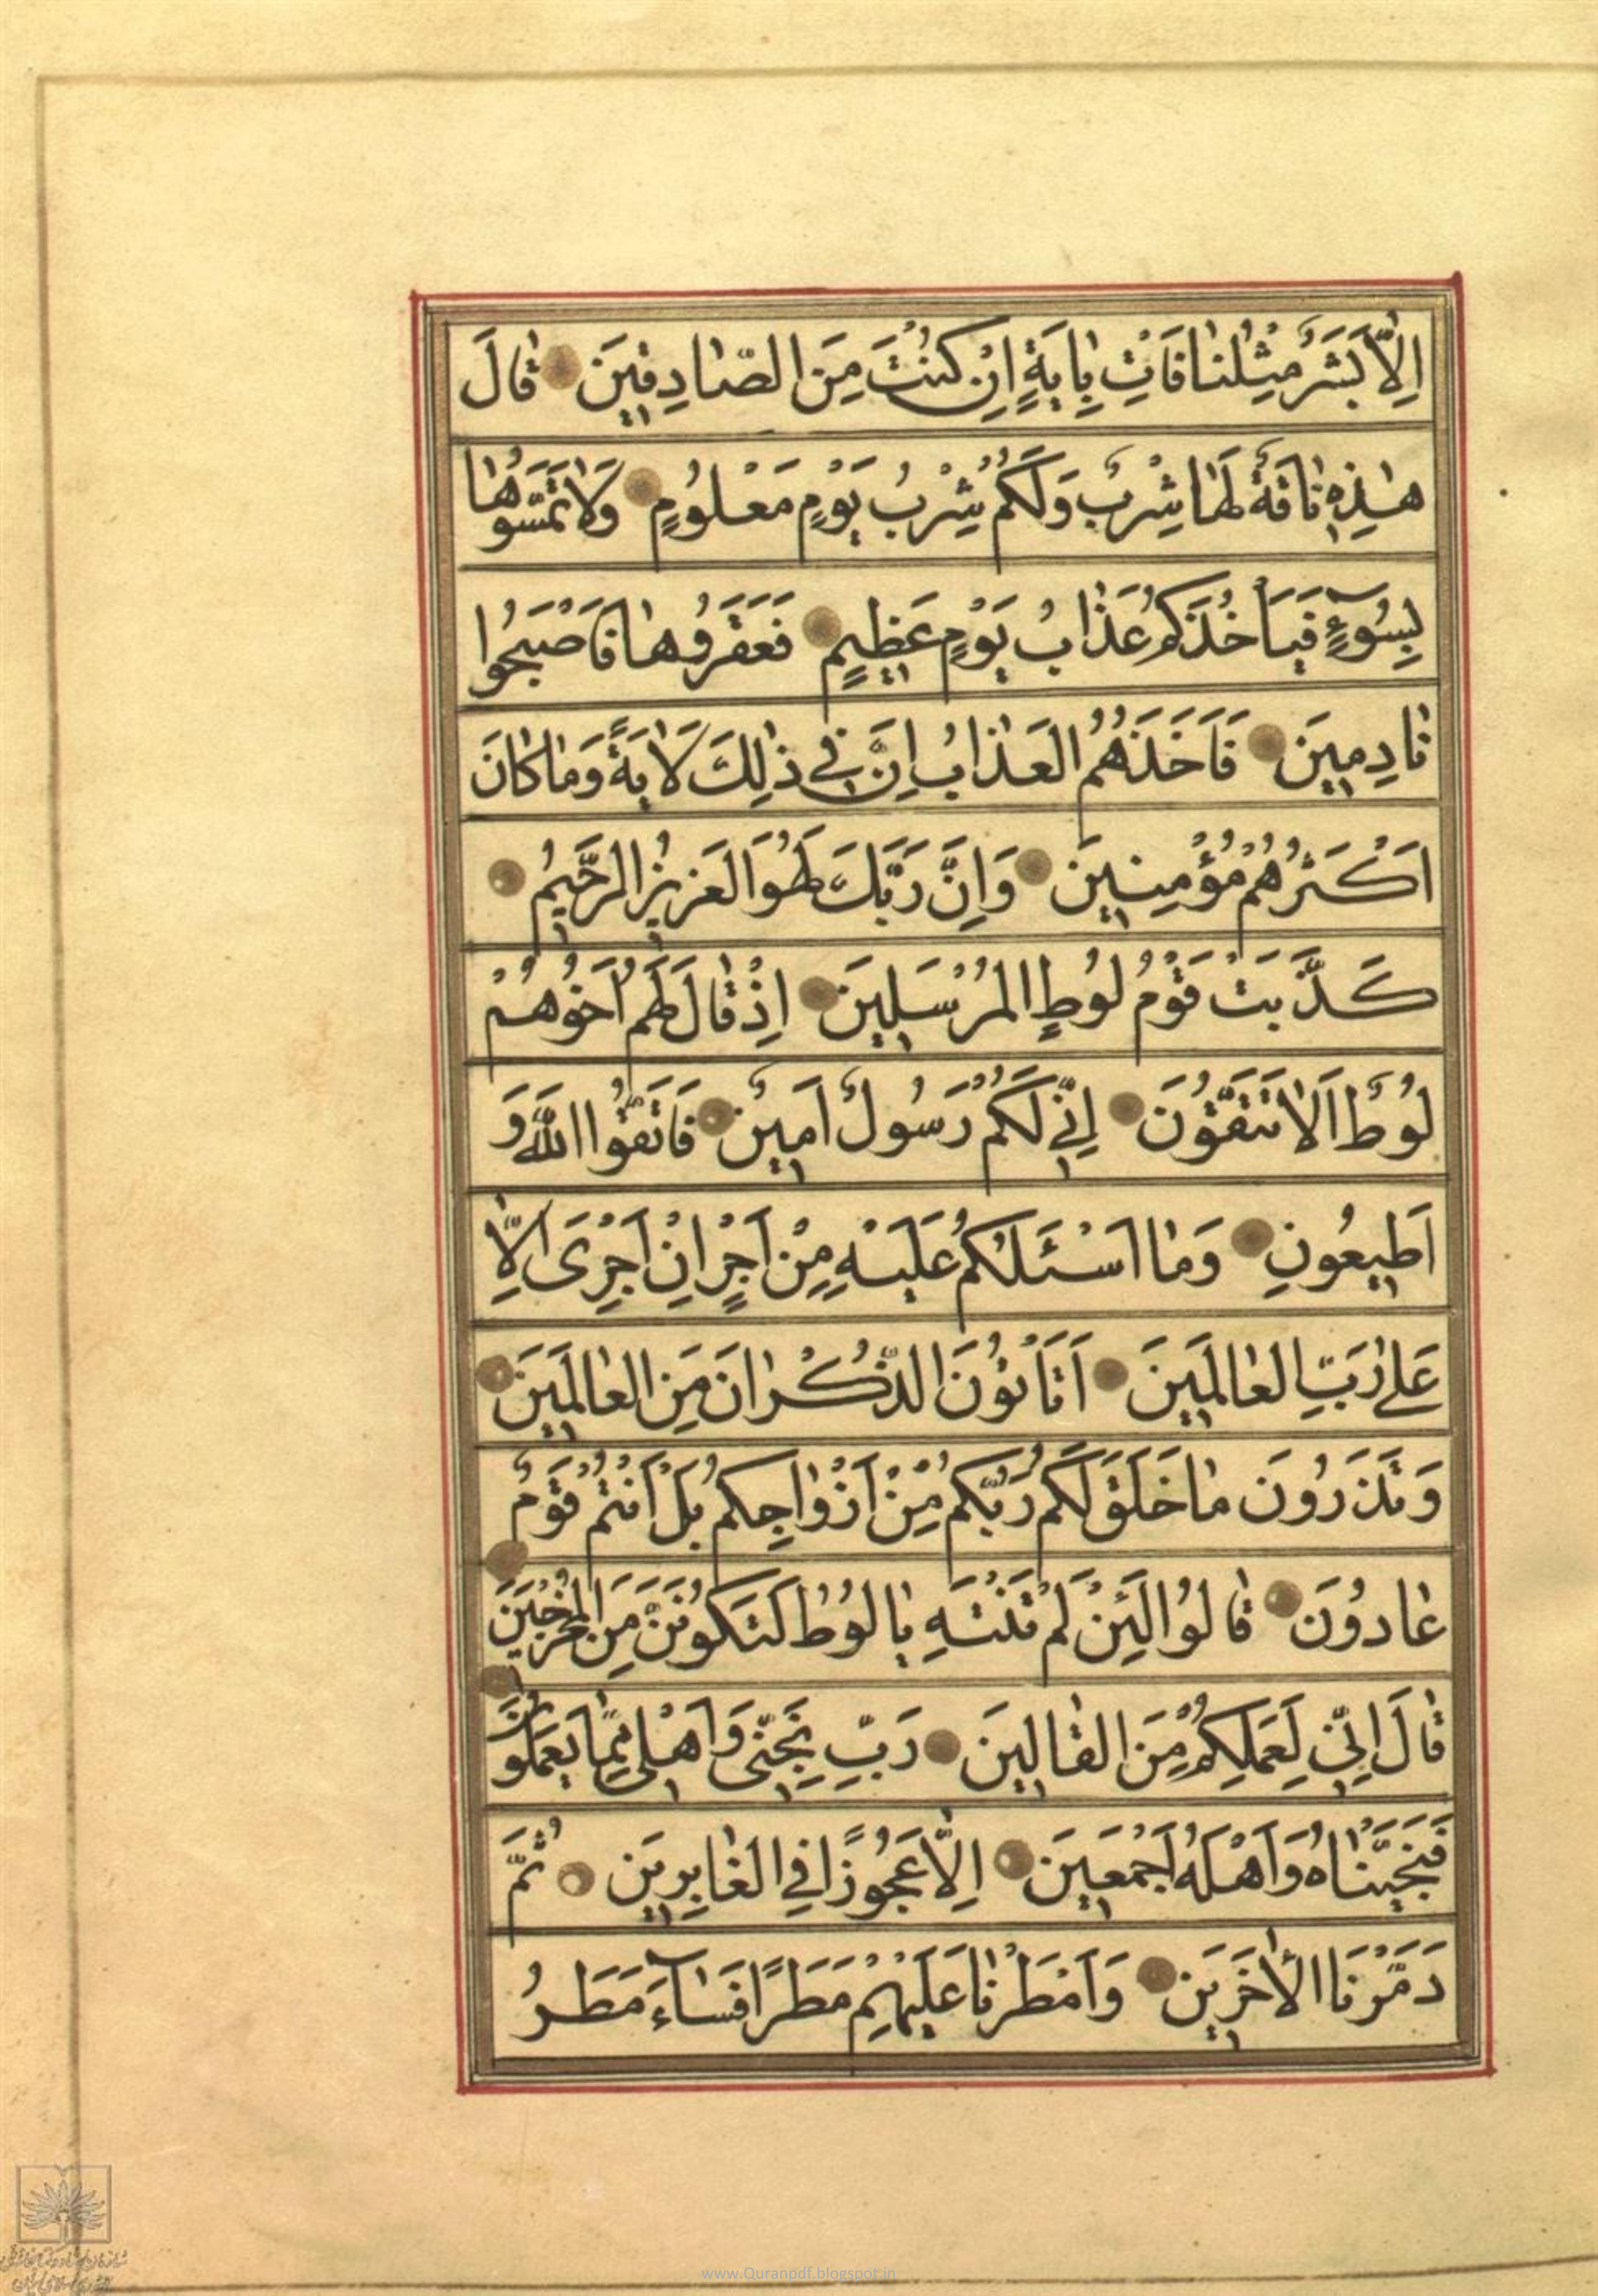 اِلّٰا بَشَرٌ مِثْلُنٰا فَأْتِ بِاٰيَةٍ اِنْ كُنْتَ مِنَ الصّٰادِقٖينَ قٰالَ
هٰذِهٖ نٰاقَةٌ لَهٰا شِرْبٌ وَلَكُمْ شِرْبُ يَوْمٍ مَعْلُومٍ وَلٰا تَمَسُّوهٰا
بِسُوۤءٍ فَيَأْخُذَكُمْ عَذٰابُ يَوْمٍ عَظٖيمٍ فَعَقَرُوهٰا فَاَصْبَحُوا
نٰادِمٖينَ فَاَخَذَهُمُ الْعَذٰابُ اِنَّ فٖي ذٰلِكَ لَاٰيَةً وَمٰا كٰانَ
اَكْثَرُهُمْ مُؤْمِنٖينَ وَاِنَّ رَبَّكَ لَهُوَ الْعَزٖيزُ الرَّحٖيمُ
كَذَّبَتْ قَوْمُ لُوطٍ الْمُرْسَلٖينَ اِذْ قٰالَ لَهُمْ اَخُوهُمْ
لُوطٌ اَلٰا تَتَّقُونَ اِنّٖي لَكُمْ رَسُولٌ اَمٖينٌ فَاتَّقُوا اللّٰهَ وَ
اَطٖيعُونِ وَمٰا اَسْئَلُكُمْ عَلَيْهِ مِنْ اَجْرٍ اِنْ اَجْرِيَ اِلّٰا
عَلٰى رَبِّ الْعٰالَمٖينَ اَتَأْتُونَ الذُّكْرٰانَ مِنَ الْعٰالَمٖينَ
وَتَذَرُونَ مٰا خَلَقَ لَكُمْ رَبُّكُمْ مِنْ اَزْوٰاجِكُمْ بَلْ اَنْتُمْ قَوْمٌ
عٰادُونَ قٰالُوا لَئِنْ لَمْ تَنْتَهِ يٰا لُوطُ لَتَكُونَنَّ مِنَ الْمُخْرَجٖينَ
قٰالَ اِنّٖي لِعَمَلِكُمْ مِنَ الْقٰالٖينَ رَبِّ نَجِّنٖي وَاَهْلٖي مِمّٰا يَعْمَلُونَ
فَنَجَّيْنٰاهُ وَاَهْلَهُ اَجْمَعٖينَ اِلّٰا عَجُوزًا فِي الْغٰابِرٖينَ ثُمَّ
دَمَّرْنَا الْاٰخَرٖينَ وَاَمْطَرْنٰا عَلَيْهِمْ مَطَرًا فَسٰاۤءَ مَطَرُ
www.Quranpdf.blogspot.in